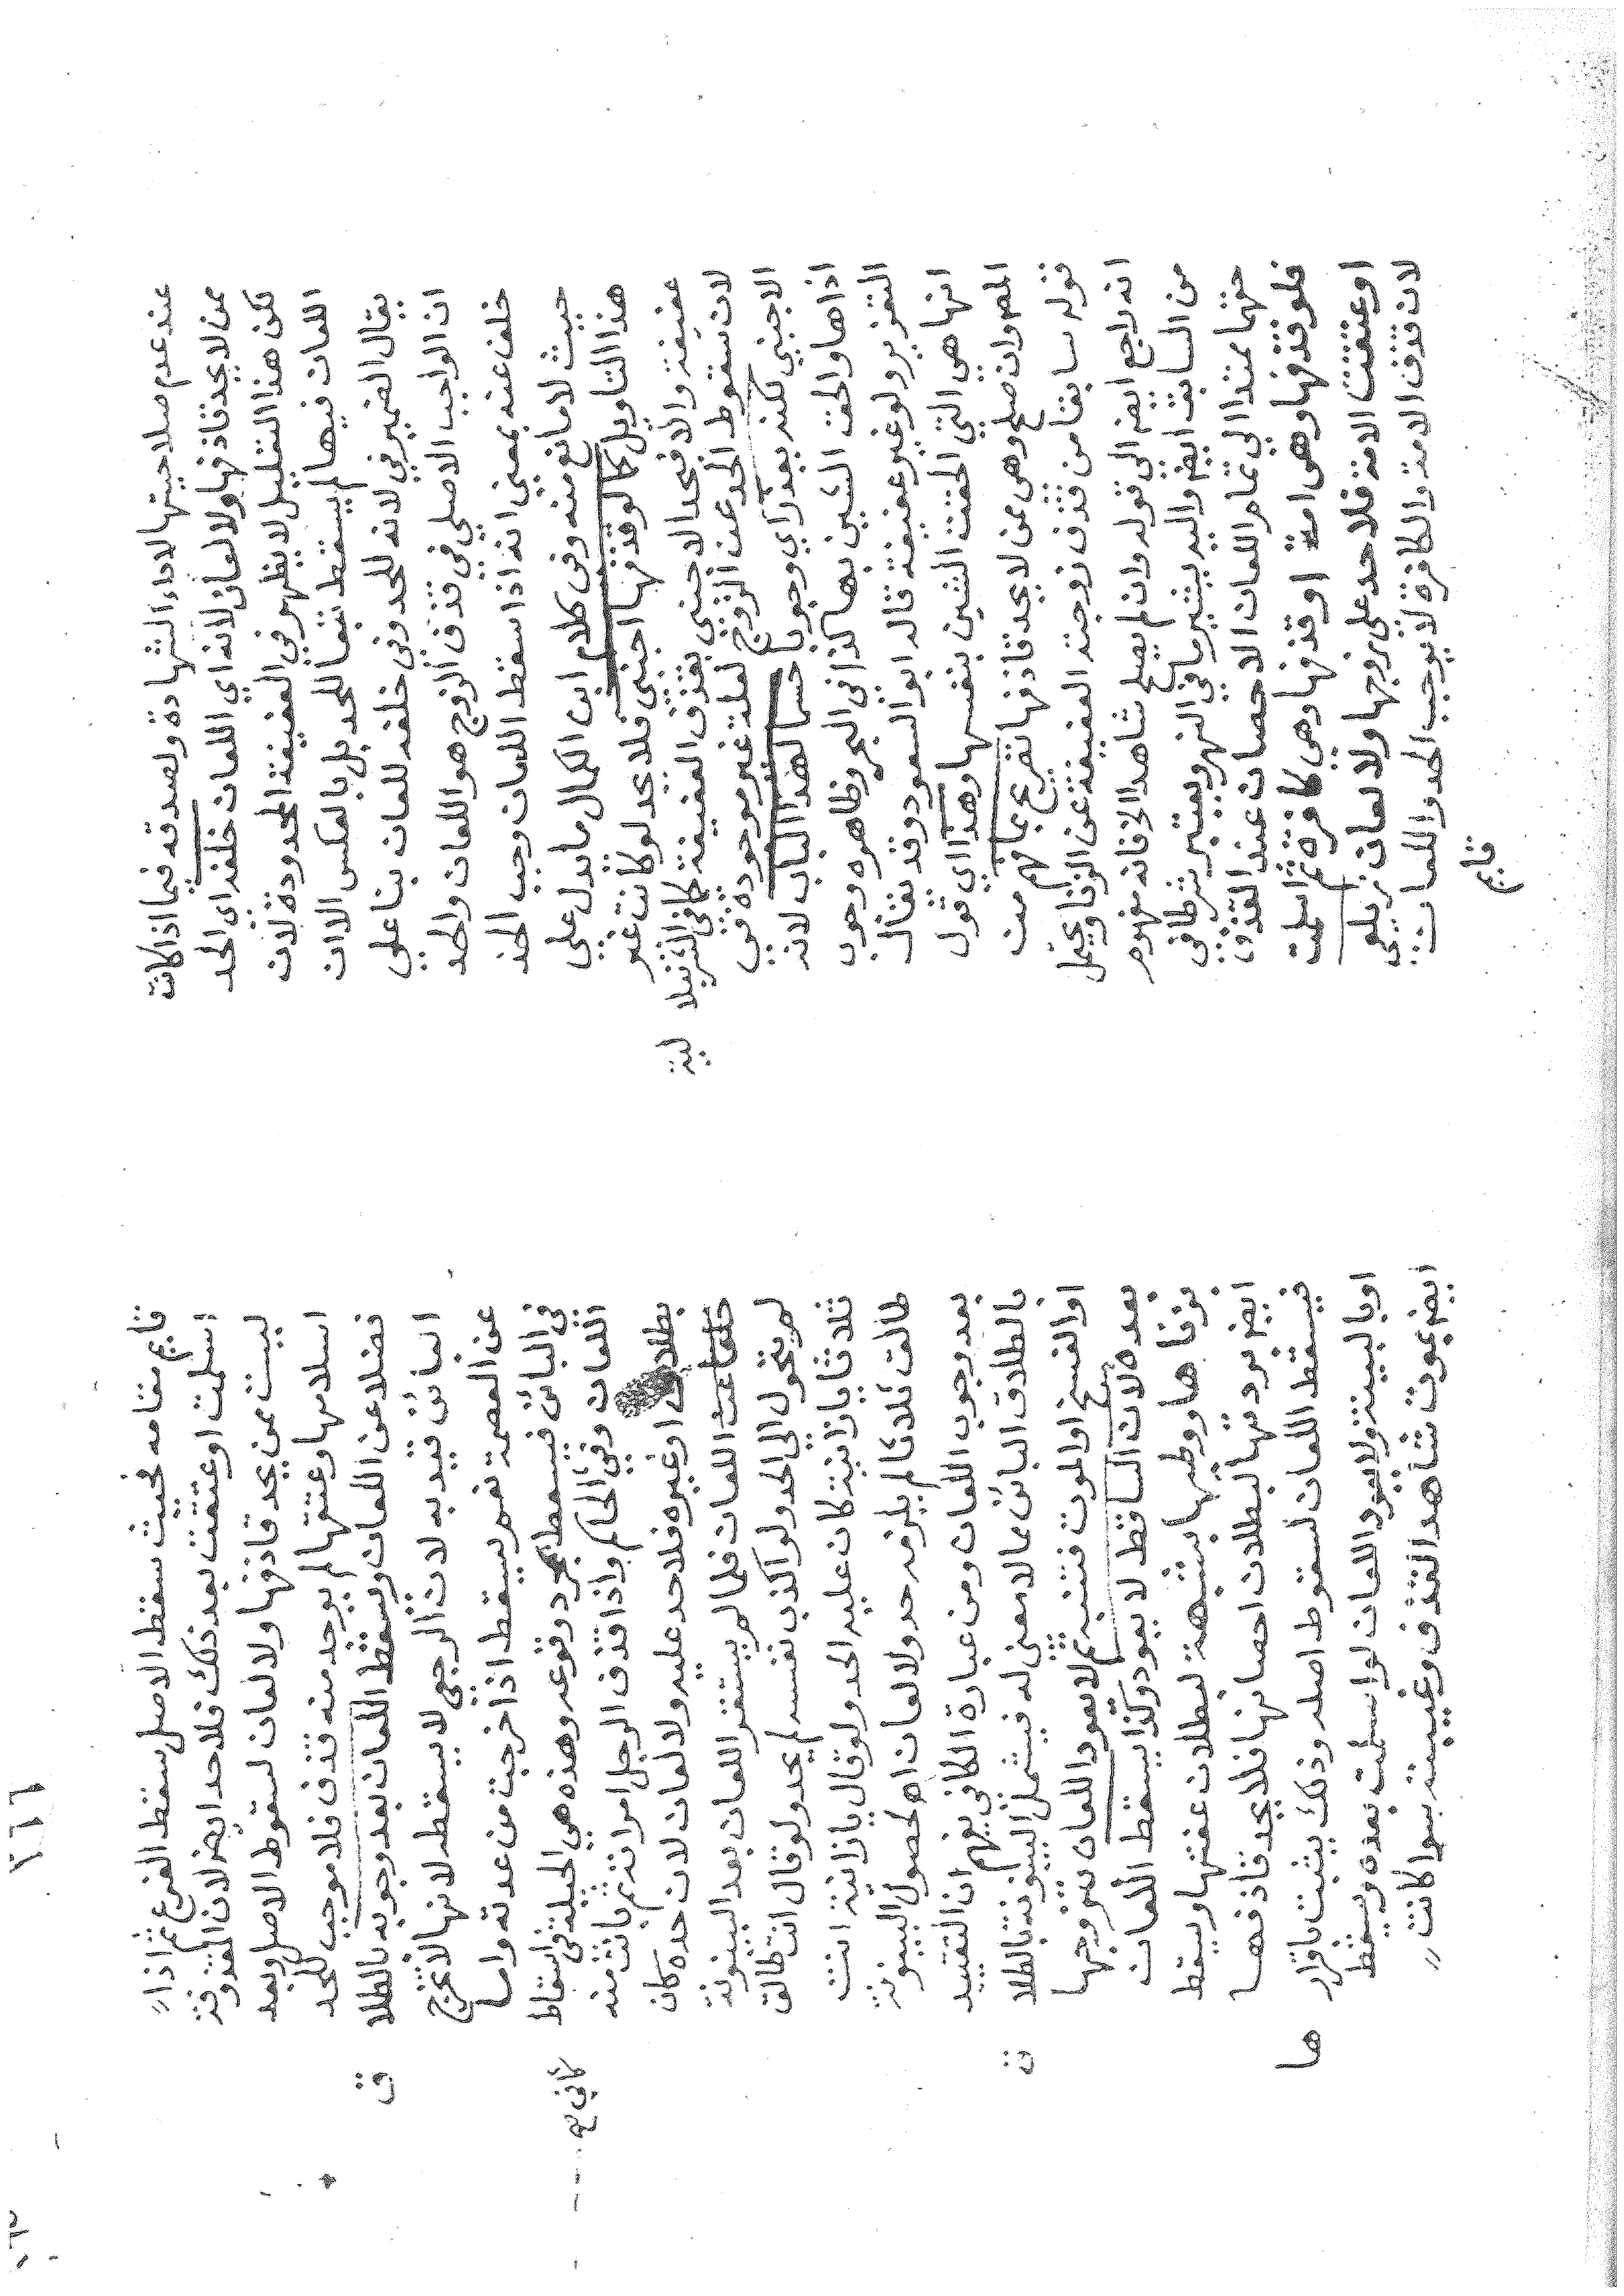 عند عدم صلاحيتها لاداء الشهادة ولصدقه فيما اذا كانت
ممن لا يحد قاذفها ولا لعان لانه اي اللعان خلفه اي الحد
لكن هذا التعليل لا يظهر في العفيفة المحدودة لان
اللعان فيها لم يسقط تبعا للحد بل بالعكس الا ان
يقال الضمير في لانه للحد وفي خلفه للعان بنا على
ان الواجب الاصلي في قذف الزوج هو اللعان والحد
خلف عنه بمعنى انه اذا سقط اللعان وجب الحد
حيث لا مانع منه وفي كلام ابن الكمال ما يدل على
هذا التاويل كما لو قذفها اجنبي فلا يحد لو كانت غير
عفيفة والا فيحد الاجنبي بقذف العفيفة كما في الشرنبلا
لية
لان سقوط الحد عن الزوج لعلة غير موجودة في
الاجنبي لكنه يعزر اي وجوبا حسما لهذا الباب لانه
اذاها والحق الشين بها كذا في البحر وظاهره وجوب
التعزير ولو غير عفيفة قاله ابو السعود وقد يقال
انها هي التي الحقت الشين بنفسها وهذا اي قول
المص وان صلح وهي ممن لا يحد قاذفها تصريح بما فهم من
قوله سابقا من قذف زوجته العفيفة عن الزنا ويحتمل
انه راجع ايضا الى قوله وان لم يصلح شاهدا الخ فانه مفهوم
من السابق ايضا واليه يشير ما في النهر ويعتبر شرطا في
حقها ممتدا الى تمام اللعان الاحصان عند القذف
فلو قذفها وهي امة او قذفها وهي كافرة ثم اسلمت
او عتقت الامة فلا حد على زوجها ولا لعان زيلعي
لان قذف الامة والكافرة لا يوجب الحد واللعان
قايم
٢٦٦
قايم مقامه فحيث سقط الاصل سقط الفرع ثم اذا
اسلمت او عتقت بعد ذلك فلا حد ايضا لان المقذوفة
ليست ممن يحد قاذفها ولا لعان لسقوط الاصل وبعد
اسلامها وعتقها لم يوجد منه قذف فلا موجب للحد
فضلا عن اللعان ويسقط اللعان بعد وجوبه بالطلا
ق
البائن قيد به لان الرجعي لا يسقط لانها لا تخرج
عن العصمة نعم يسقط اذا خرجت من عدته واما
في البائن فيسقط بمجرد وقوعه وهذه هي الحيلة في اسقاط
اللعان وفي الحاكم واذا قذف الرجل امراته ثم بانت منه
كافي مح
بطلاق او غيره فلا حد عليه ولا لعان لان حده كان
اللعان فلما لم يستقر اللعان بعد البينونة
لم يتحول الى الحد ولو اكذب نفسه لم يحد ولو قال انت طالق
ثلاثا يا زانية كان عليه الحد ولو قال يا زانية انت
طالق ثلاثا لم يلزمه حد ولا لعان اه لحصول البينونة
بعد وجوب اللعان ومن عبارة الكافي يفهم ان التقييد
بالطلاق البائن مما لا معنى له فيشمل البينونة بالطلا
ق
او الفسخ او الموت فتنبه ثم لا يعود اللعان بتزوجها
بعده لان الساقط لا يعود وكذا يسقط اللعان
بزناها ووطيها بشبهة لبطلان عفتها ويسقط
ايضا بردتها لبطلان احصانها فلا يحد قاذفها
فيسقط اللعان لسقوط اصله وذلك يثبت باقرار
ها
او بالبينة ولا يعود اللعان لو اسلمت بعده ويسقط
ايضا بموت شاهد القذف وغيبته سوا كانت